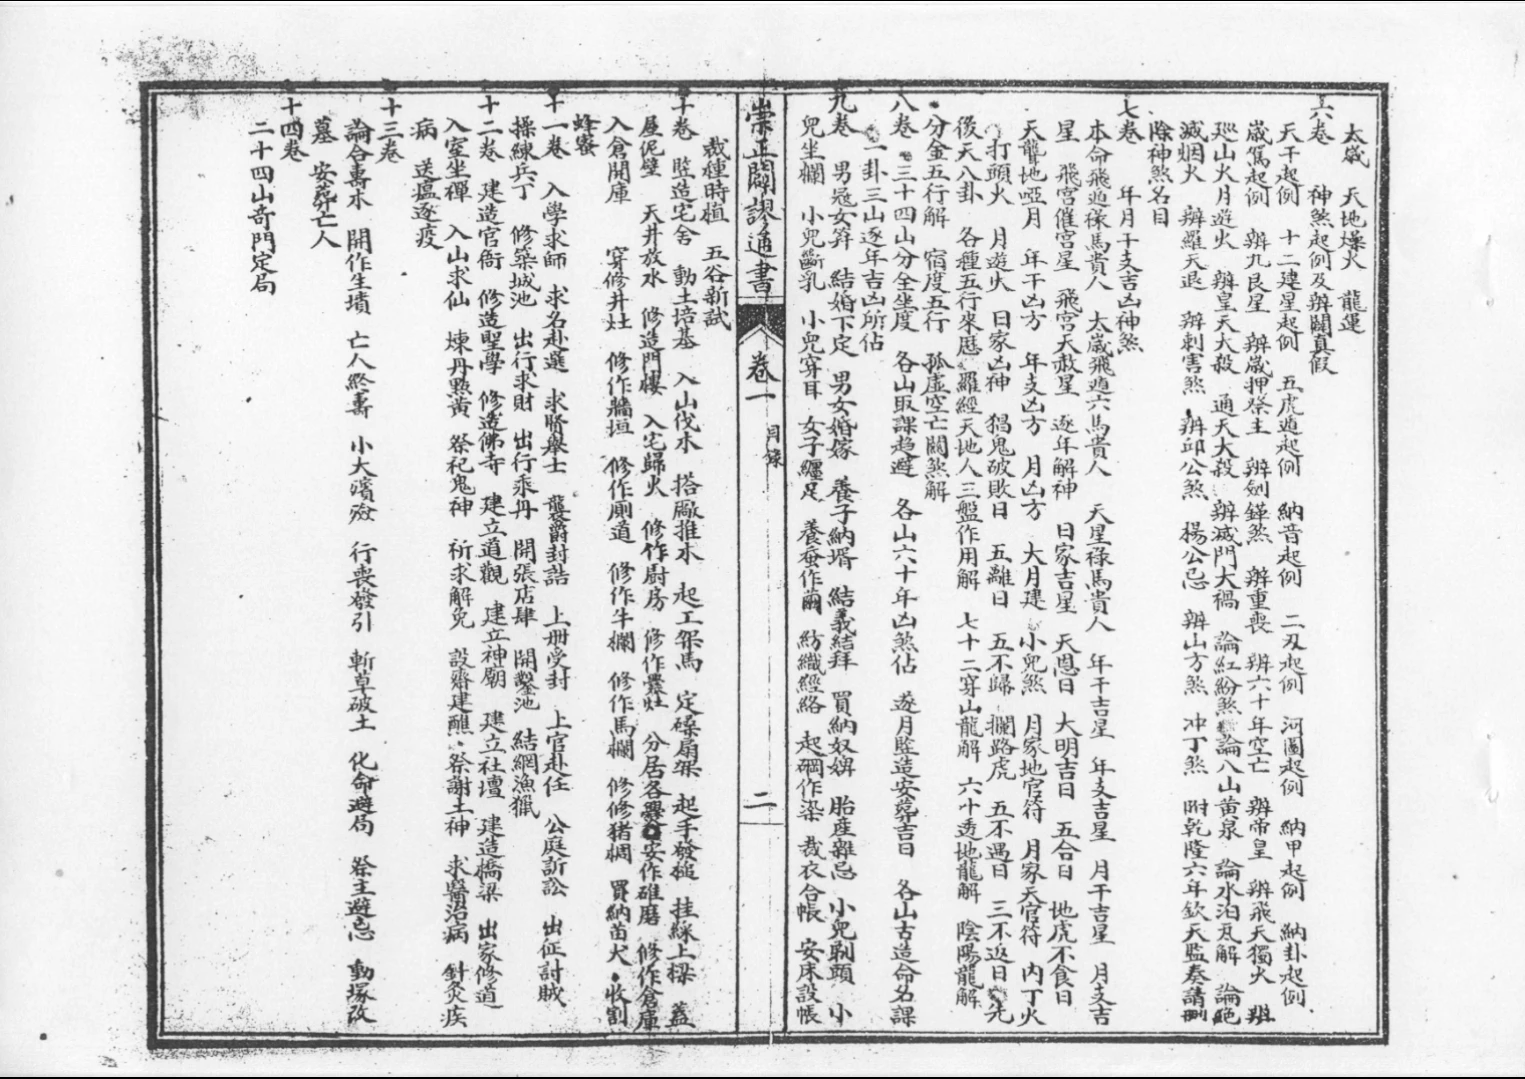 太歲　天地燥火　龍運
六卷　神煞起例及辨闢真假
天干起例　十二建星起例　五虎遁起例　納音起例　二刃起例　河圖起例　納甲起例　納卦起例
歲篤起例　辨九良星　辨歲押祭主　辨劍鋒煞　辨重喪　辨六十年空亡　辨帝皇　辨飛天獨火　辨
廵山火月遊火　辨皇天大殺　通天大殺　辨滅門大禍　論紅紛煞　論八山黃泉　論水泊及解　論絶
滅烟火　辨羅天退　辨刺害煞　辨邱公煞　楊公忌　辨山方煞　冲丁煞　附乾隆六年欽天監奏請刪
除神煞名目
七卷　年月干支吉凶神煞
本命飛遁祿馬貴人　太歲飛遁六馬貴人　天星祿馬貴人　年干吉星　年支吉星　月干吉星　月支吉
星　飛宮催官星　飛宮天赦星　逐年解神　日家吉星　天恩日　大明吉日　五合日　地虎不食日
天聾地啞月　年干凶方　年支凶方　月凶方　大月建　小兒煞　月家地官符　月家天官符　内丁火
打頭火　月遊火　日家凶神　猖鬼破敗日　五離日　五不歸　攔路虎　五不遇日　三不返日　先
後天八卦　各種五行來厯　羅經天地人三盤作用解　七十二穿山龍解　六十透地龍解　陰陽龍解
分金五行解　宿度五行　孤虛空亡關煞解
八卷　二十四山分全坐度　各山取課趋避　各山六十年凶煞佔　遂月監造安葬吉日　各山古造命名課
一卦三山逐年吉凶所佔
九卷　男冠女筓　結婚下定　男女婚嫁　養子納壻　結義結拜　買納奴婢　胎產雜忌　小兒剃頭　小
兒坐欄　小兒斷乳　小兒穿耳　女子纏足　養蚕作繭　紡織經絡　起碙作染　裁衣合帳　安床設帳
崇正闢謬通書　卷一　目錄　二
栽種時植　五谷新試
十卷　監造宅舍　動土培基　入山伐木　搭廠推木　起工架馬　定磉扇架　起手發槌　挂綵上樑　蓋
屋泥壁　天井放水　修造門樓　入宅歸火　修作廚房　修作爨灶　分居各爨　安作碓磨　修作倉庫
入倉開庫　穿修井灶　修作牆垣　修作厠道　修作牛欄　修作馬欄　修修猪椆　買納苗犬　收割
蜂蜜
十一卷　入學求師　求名赴選　求賢舉士　襲爵封誥　上册受封　上官赴任　公庭訴訟　出征討賊
操練兵丁　修築城池　出行求財　出行乘丹　開張店肆　開鑿池　結網漁獵
十二卷　建造官衙　修造聖學　修造佛寺　建立道觀　建立神廟　建立社壇　建造橋梁　出家修道
入室坐禪　入山求仙　煉丹點黄　祭祀鬼神　祈求解免　設齋建醮　祭謝土神　求醫治病　針灸疾
病　送瘟逐疫
十三卷
論合壽木　開作生墳　亡人終壽　小大濱殮　行喪發引　斬草破土　化命避局　祭主避忌　動塚改
墓　安葬亡人
十四卷
二十四山奇門定局